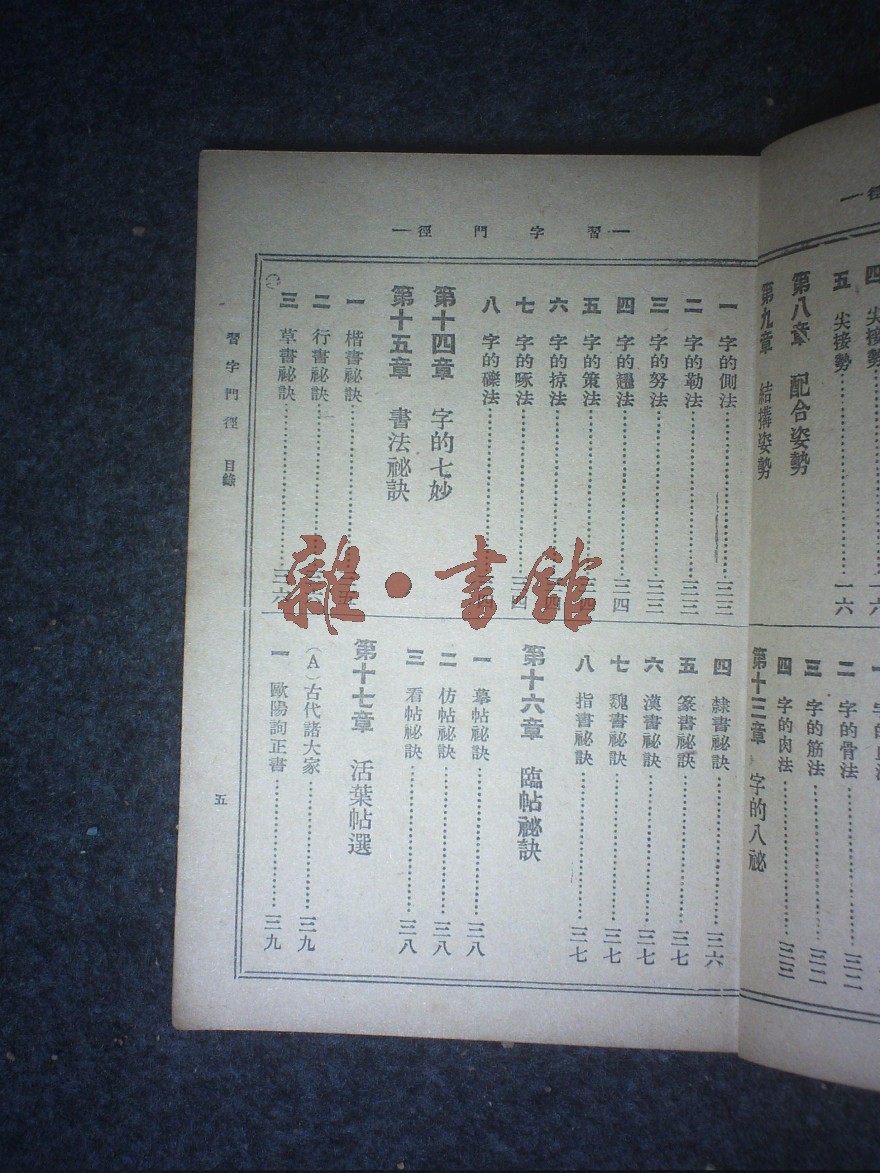 四 尖接勢 一六
五 尖接勢 一六
第八章 配合姿勢
第九章 結構姿勢
二 字的骨法 三二
三 字的筋法 三二
四 字的肉法 三三
第十三章 字的八祕
一習字門徑一
一 字的側法 三三
二 字的勒法 三三
三 字的努法 三三
四 字的趯法 三四
五 字的策法 三四
六 字的掠法 三四
七 字的啄法 三四
八 字的磔法
第十四章 字的七妙
第十五章 書法祕訣
一 楷書祕訣
二 行書祕訣
三 草書祕訣 三六
四 隸書祕訣 三六
五 篆書祕訣 三七
六 漢書祕訣 三七
七 魏書祕訣 三七
八 指書祕訣 三七
第十六章 臨帖祕訣
一 摹帖祕訣 三八
二 仿帖祕訣 三八
三 看帖祕訣 三八
第十七章 活葉帖選
(A)古代諸大家 三九
一 歐陽詢正書 三九
習字門徑 目錄
五
雜·書館